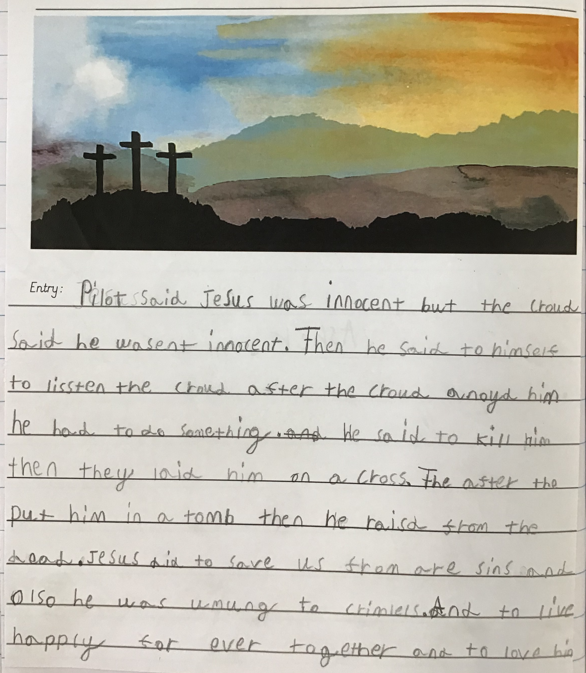 Entry: Pilot said Jesus was innocent but the croud
said he wasent innocent. Then he said to himself
to lissten the croud after the croud anoyd him
he had to do something. and he said to kill him
then they laid him on a cross. The after tha
put him in a tomb then he raisd from the
daad. Jesus did to save us from are sins and
also he was umung to crimiels. And to live
happly for ever together and to love his